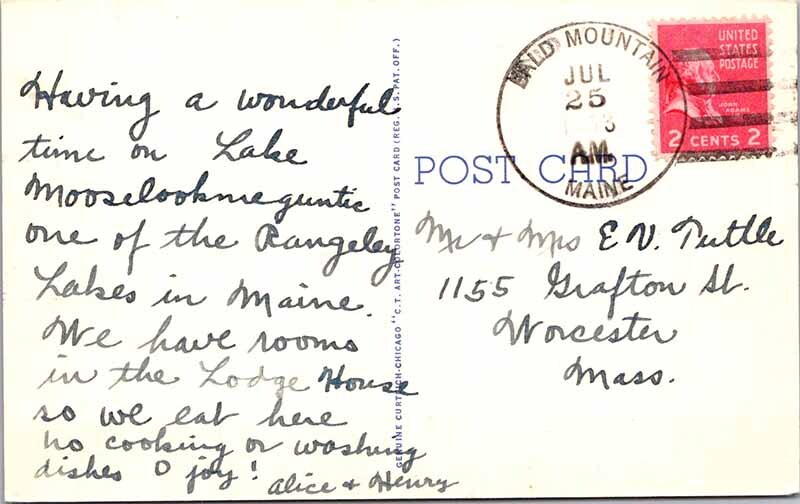 Having a wonderful
time on Lake
Mooselookmeguntic
one of the Rangeley
Lakes in Maine.
We have rooms
in the Lodge House
so we eat here
no cooking or washing
dishes O joy!
Alice & Henry
GENUINE CURTEICH-CHICAGO "C.T. ART-COLORTONE" POST CARD (REG. U.S. PAT. OFF.)
POST CARD
BALD MOUNTAIN
JUL
25
AM
MAINE
UNITED
STATES
POSTAGE
JOHN
ADAMS
2 CENTS 2
Mr & Mrs E V. Tuttle
1155 Grafton St.
Worcester
Mass.